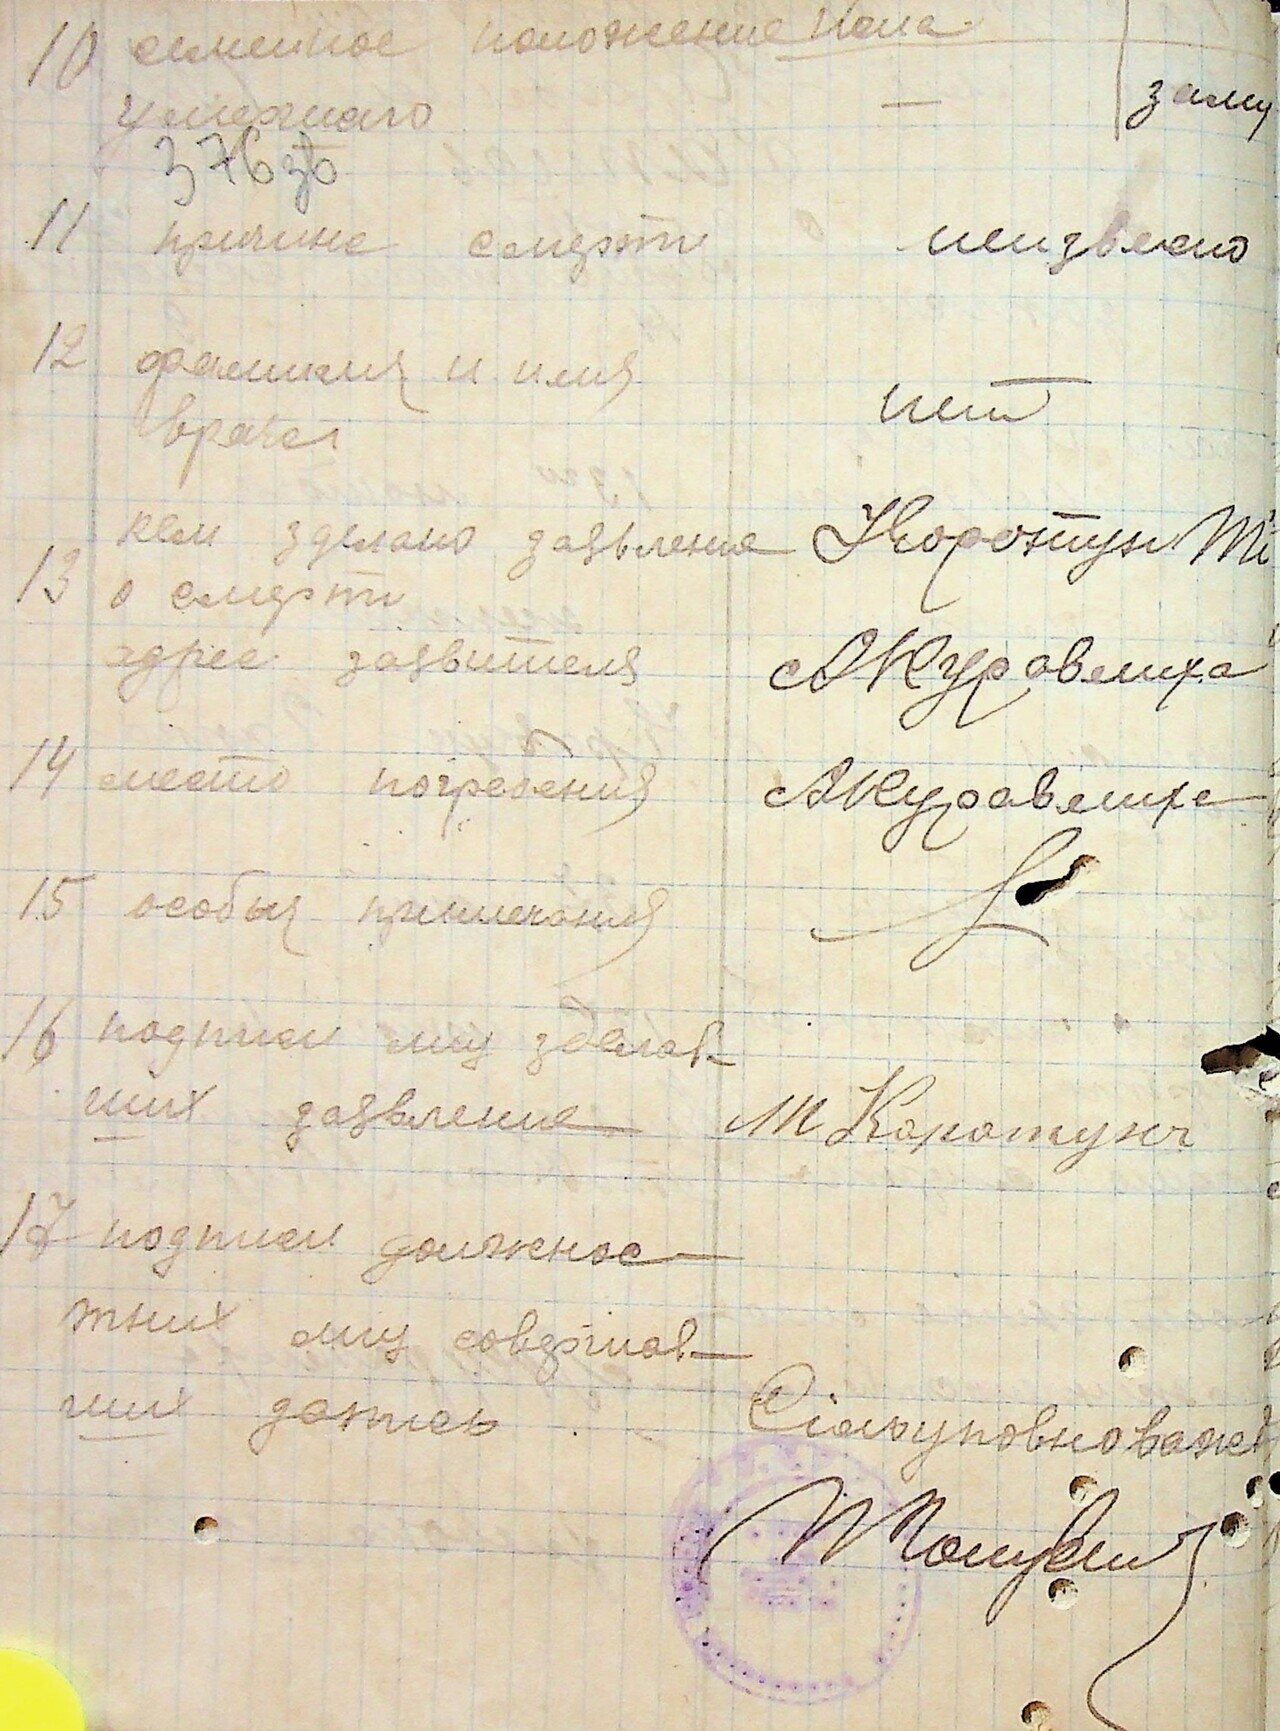 10 семейное положение
умершаго — заму
376
11 причина смерти неизвесно
12 фамилия и имя
врача нет
кем зделано заявление Коротун
13 о смерти
адрес заявителя Журавлиха
14 место погребения Журавлиха
15 особыя примечания
16 подписи лиц зделав-
ших заявление М Каратун
17 подписи должнос-
тних лиц совершав-
ших запись Сільуповноваже